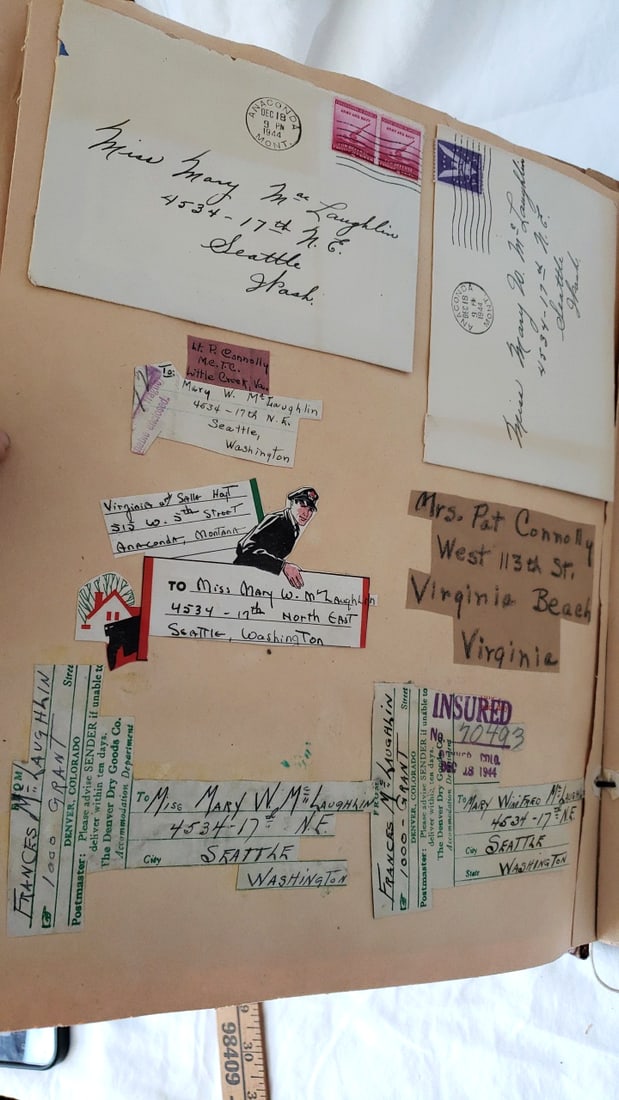 ANACONDA
DEC 18
9 PM
1944
MONT.
ARMY AND NAVY
ARMY AND NAVY
Miss Mary Mac Laughlin
4534-17th N.E.
Seattle
Wash.
ANACONDA
DEC 18
9 PM
1944
MONT.
Miss Mary W. McLaughlin
4534-17th N.E.
Seattle
Wash.
Lt. P. Connolly
M.C.T.C.
Little Creek, Va.
To:
Mary W. McLaughlin
4534-17th N.E.
Seattle,
Washington
Virginia
515 W. 5th Street
Anaconda, Montana
TO Miss Mary W. McLaughlin
4534-17th North East
Seattle, Washington
Mrs. Pat Connolly
West 113th St.
Virginia Beach
Virginia
FROM
FRANCES McLAUGHLIN
1000 GRANT Street
DENVER, COLORADO
Postmaster: Please advise SENDER if unable to
deliver within ten days.
The Denver Dry Goods Co.
Accommodation Department
To Miss MARY W. McLAUGHLIN
4534-17th N.E.
City SEATTLE
WASHINGTON
FRANCES McLAUGHLIN
1000-GRANT Street
DENVER, COLORADO
Postmaster: Please advise SENDER if unable to
deliver within ten days.
The Denver Dry Goods Co.
Accommodation Department
INSURED
No. 70493
DEC 18 1944
To MARY WINIFRED McLAUGHLIN
4534-17th N.E.
City SEATTLE
State WASHINGTON
98409
30